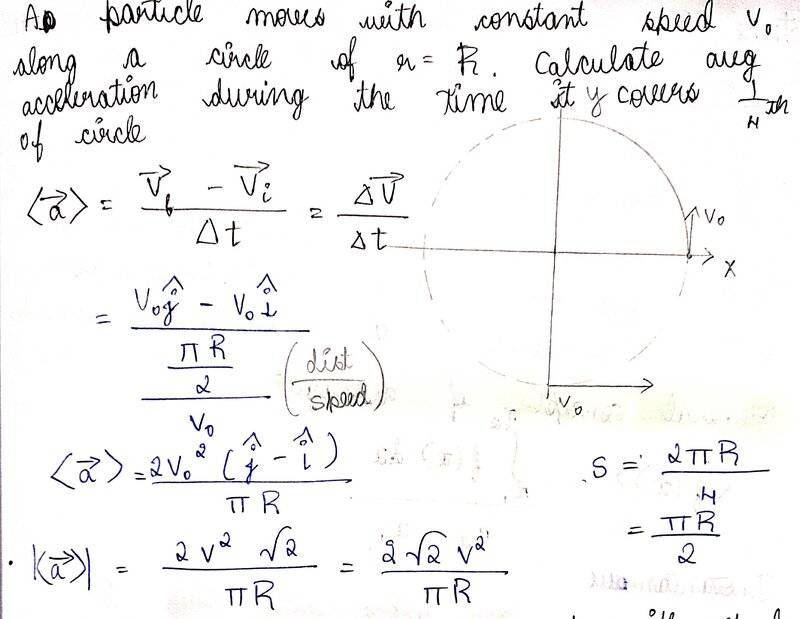 A particle moves with constant speed V₀
along a circle of r = R. Calculate avg
acceleration during the time it covers 1/4 th
of circle
y
⟨a⃗⟩ = (V⃗f − V⃗i)/Δt = ΔV⃗/Δt
V₀
x
= (V₀ĵ − V₀î)/((πR/2)/V₀) (dist/speed)
V₀
⟨a⃗⟩ = 2V₀²(ĵ − î)/πR
S = 2πR/4
= πR/2
|⟨a⃗⟩| = 2V²√2/πR = 2√2V²/πR